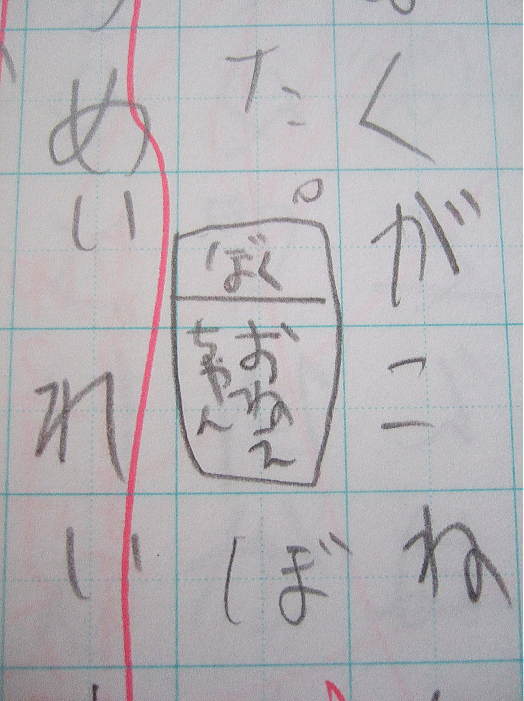 くがこね
た。
ぼく
おねえ
ちゃん
ぼ
めいれい